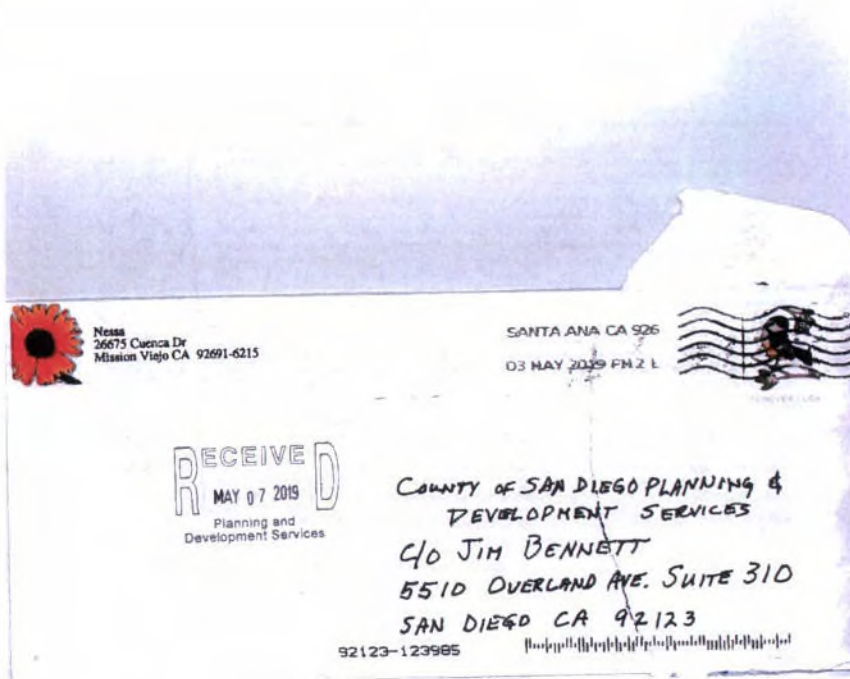 Nessa
26675 Cuenca Dr
Mission Viejo CA 92691-6215
SANTA ANA CA 926
03 MAY 2019 PM 2 L
FOREVER / USA
RECEIVED
MAY 07 2019
Planning and
Development Services
COUNTY OF SAN DIEGO PLANNING &
DEVELOPMENT SERVICES
C/O JIM BENNETT
5510 OVERLAND AVE. SUITE 310
SAN DIEGO CA 92123
92123-123985